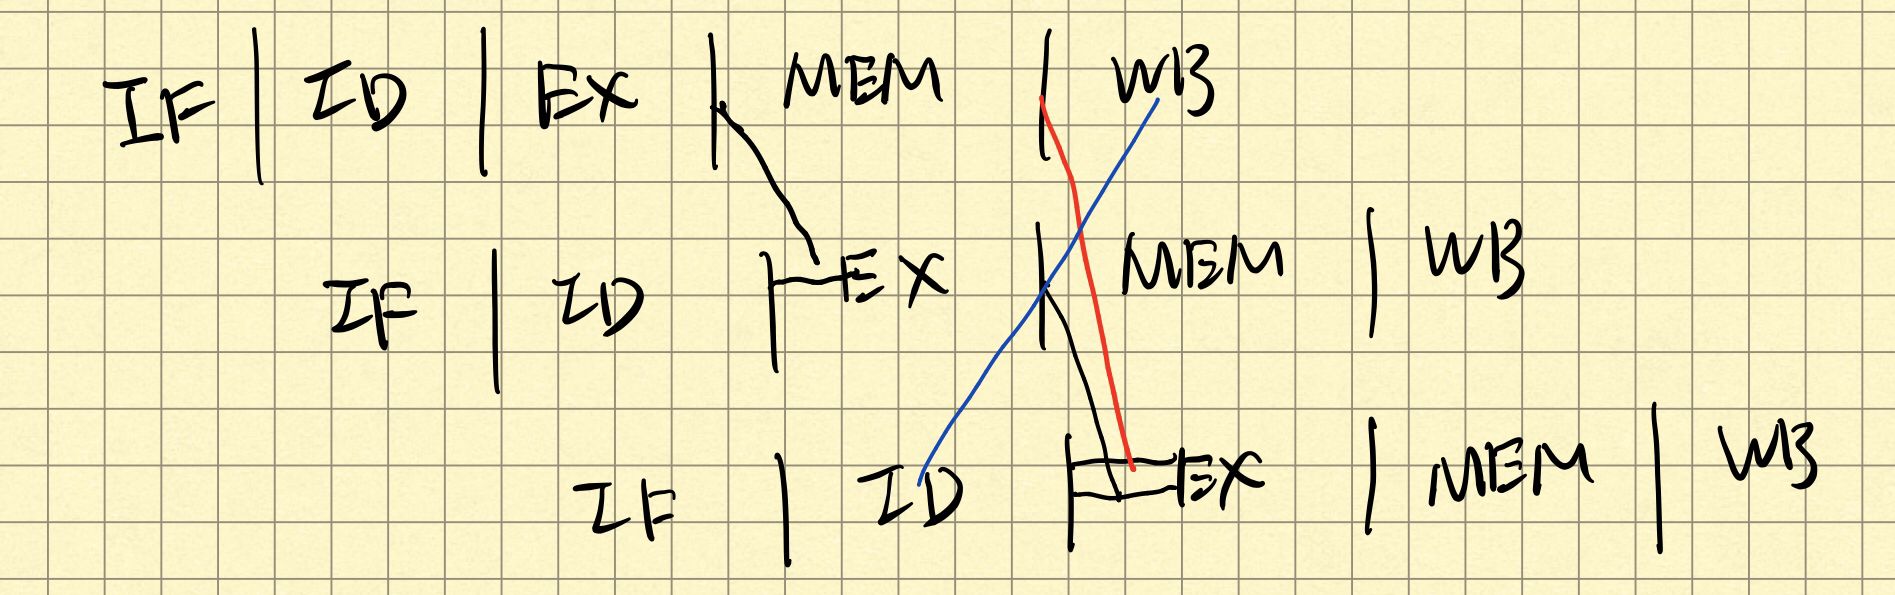 IF | ID | EX | MEM | WB
IF | ID | EX | MEM | WB
IF | ID | EX | MEM | WB